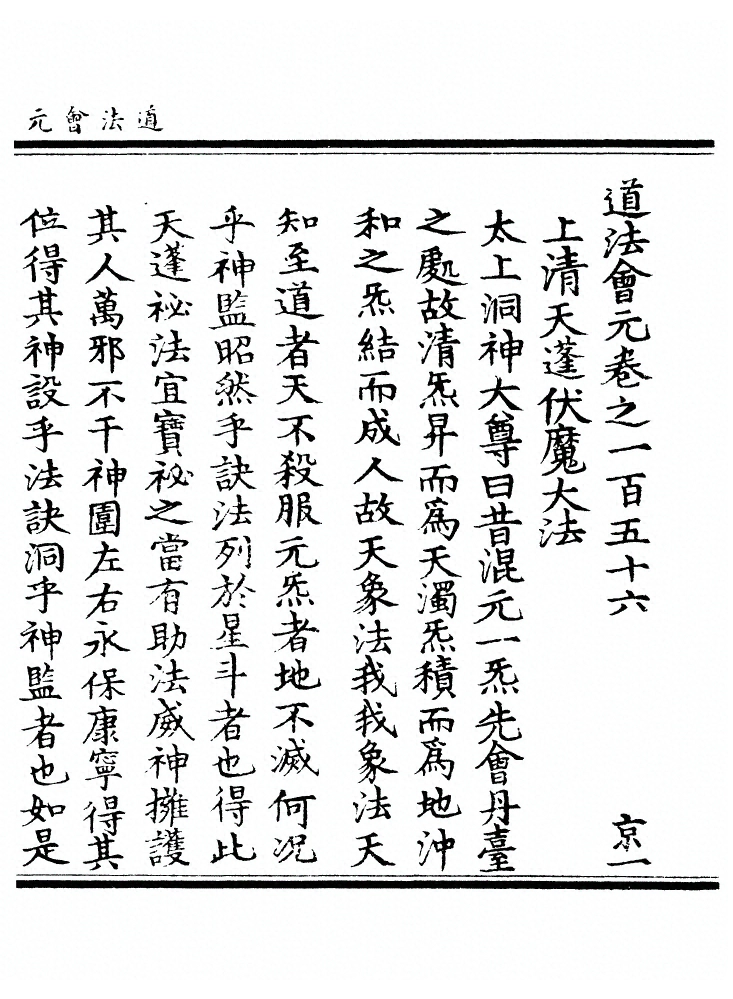 道法會元
道法會元卷之一百五十六 京一
上清天蓬伏魔大法
太上洞神大尊曰昔混元一炁先會丹臺
之處故清炁昇而爲天濁炁積而爲地沖
和之炁結而成人故天象法我我象法天
知至道者天不殺服元炁者地不滅何况
乎神監昭然乎訣法列於星斗者也得此
天蓬祕法宜寶祕之當有助法威神擁護
其人萬邪不干神圍左右永保康寧得其
位得其神設乎法訣洞乎神監者也如是